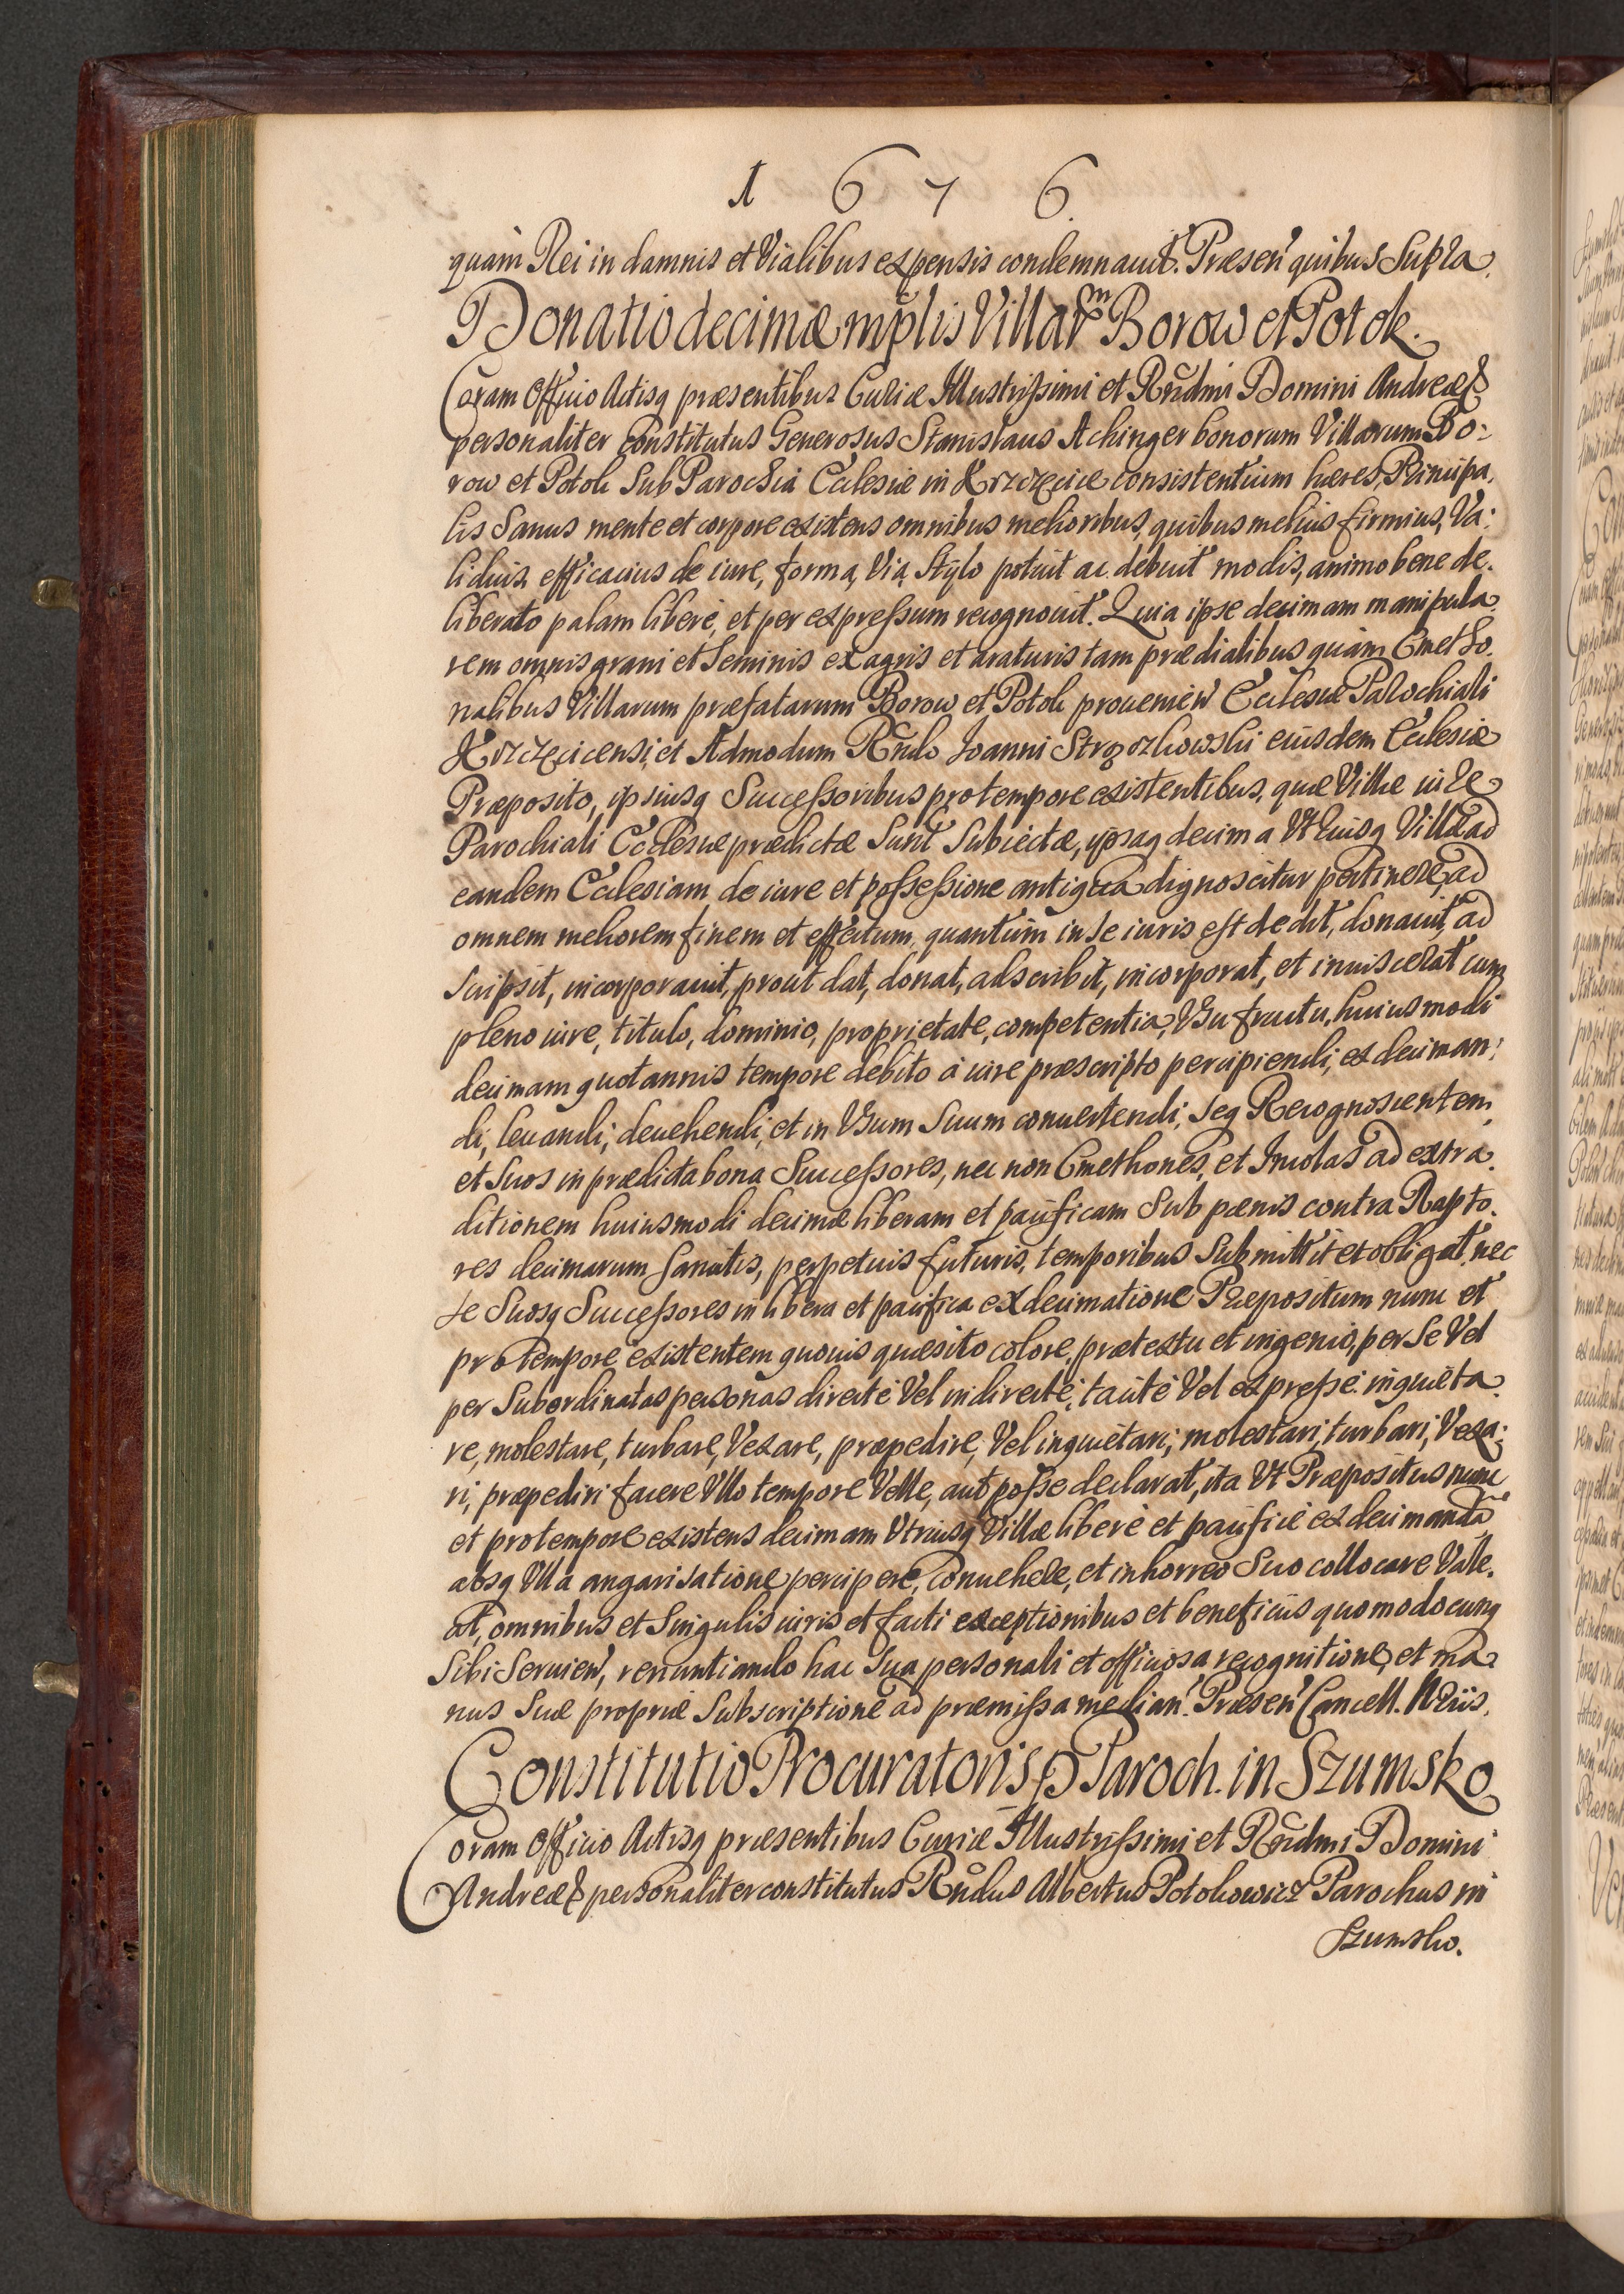 1 6 7 6.
quàm Rei in damnis et Vialibus expensis condemnauit. Præsen̄ quibus Supra.
Donatio decimæ mp̄lis Villarm Borow et Potok.
Coram Officio Actisq præsentibus Curiæ Illustrissimi et Rn̄dmi Domini Andreæ &
personaliter constitutus Generosus Stanislaus Achinger bonorum Villarum Bo:
row et Potok Sub Parochia Ecclesiæ in Krzczęcice consistentium hæres Principa,
lis Sanus mente et corpore existens omnibus melioribus, quibus melius firmius, Va:
lidius, efficacius de iure, forma, Via, Stylo potuit ac debuit modis, animo bene de.
liberato palam liberè, et per expressum recognouit. Quia ipse decimam manipula,
rem omnis grani et Seminis ex agris et araturis tam prædialibus quàm Cmetho.
nalibus Villarum præfatarum Borow et Potok prouenien̄ Ecclesiæ Parochiali
Krzczęcicensi, et Admodum Rn̄do Joanni Strączkowski eiusdem Ecclesiæ
Præposito, ipsiusq Successoribus pro tempore existentibus, quæ Villæ iure
Parochiali Ecclesiæ prædictæ Sunt Subiectæ, ipsaq decima Utriusq Villæ ad
eandem Ecclesiam, de iure et possessione antiqua dignoscitur pertinere, ad
omnem meliorem finem et effectum, quantum in Se iuris est dedit, donauit, ad
scripsit, incorporauit, prout dat, donat, adscribit, incorporat, et inuiscerat cum
pleno iure, titulo, dominio, proprietate, competentia, Usufructu, huiusmodi
decimam quotannis tempore debito à iure præscripto percipiendi, exdeciman:
di, leuandi, deuehendi, et in Usum Suum conuertendi, Seq Recognoscentem,
et Suos in prædicta bona Successores, nec non Cmethones, et Incolas ad extra.
ditionem huiusmodi decimæ liberam et pacificam Sub pœnis contra Rapto.
res decimarum Sancitis, perpetuis futuris, temporibus Submittit et obligat, nec
Se Suosq Successores in libera et pacifica exdecimatione Præpositum nunc et
pro tempore existentem quouis quæsito colore, prætextu et ingenio, per Se Vel
per Subordinatas personas directè Vel indirectè, tacitè Vel expressè inquieta.
re, molestare, turbare, Vexare, præpedire, Vel inquietari, molestari, turbari, Vexa:
ri, præpediri facere Ullo tempore Velle, aut posse declarat, ita Ut Præpositus nunc
et pro tempore existens decimam Utriusq Villæ liberè et pacificè exdecimandā
absq Ulla angarisatione percipere, conuehere, et in horreo Suo collocare Vale.
at, omnibus et Singulis iuris et facti exceptionibus et beneficiis quomodocunq
Sibi Seruien̄, renuntiando hac Sua personali et officiosa recognitione, et ma:
nus Suæ propriæ Subscriptione ad præmissa median̄. Præsen̄ Cancell. Nr̄iis.
Constitutio Procuratoris p Paroch. in Szumsko
Coram Officio Actisq præsentibus Curiæ Illustrissimi et Rn̄dmi Domini
Andreæ & personaliter constitutus Rn̄dus Albertus Potokowicz Parochus in
Szumsko.